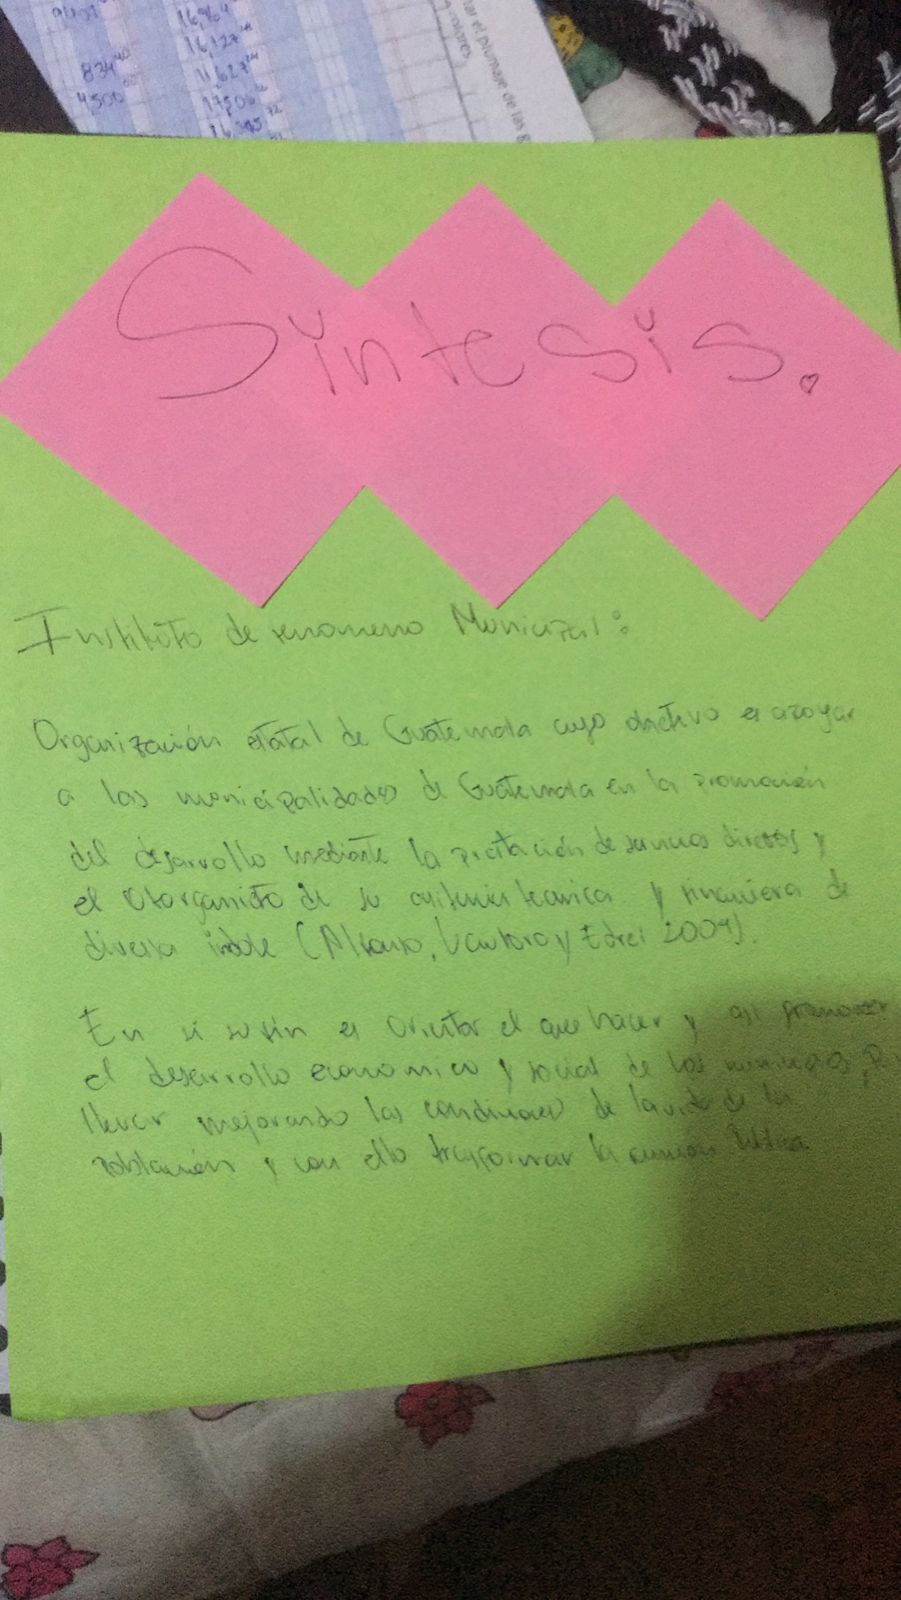 9401
16,964
16,127
834
11,627
4500
17506
tar el plumaje de las
colores.
Síntesis.
Instituto de fenomeno Municipal:
Organización estatal de Guatemala cuyo objetivo es apoyar
a las municipalidades de Guatemala en la promoción
del desarrollo mediante la prestación de servicios directos y
el otorgamiento de su asistencia tecnica y financiera de
diversa indole (Alfonso, y Edrei 2009).
En si su fin es orientar el que hacer y asi promover
el desarrollo economico y social de los municipios,
llevar mejorando las condiciones de la vida de la
población y con ello transformar la